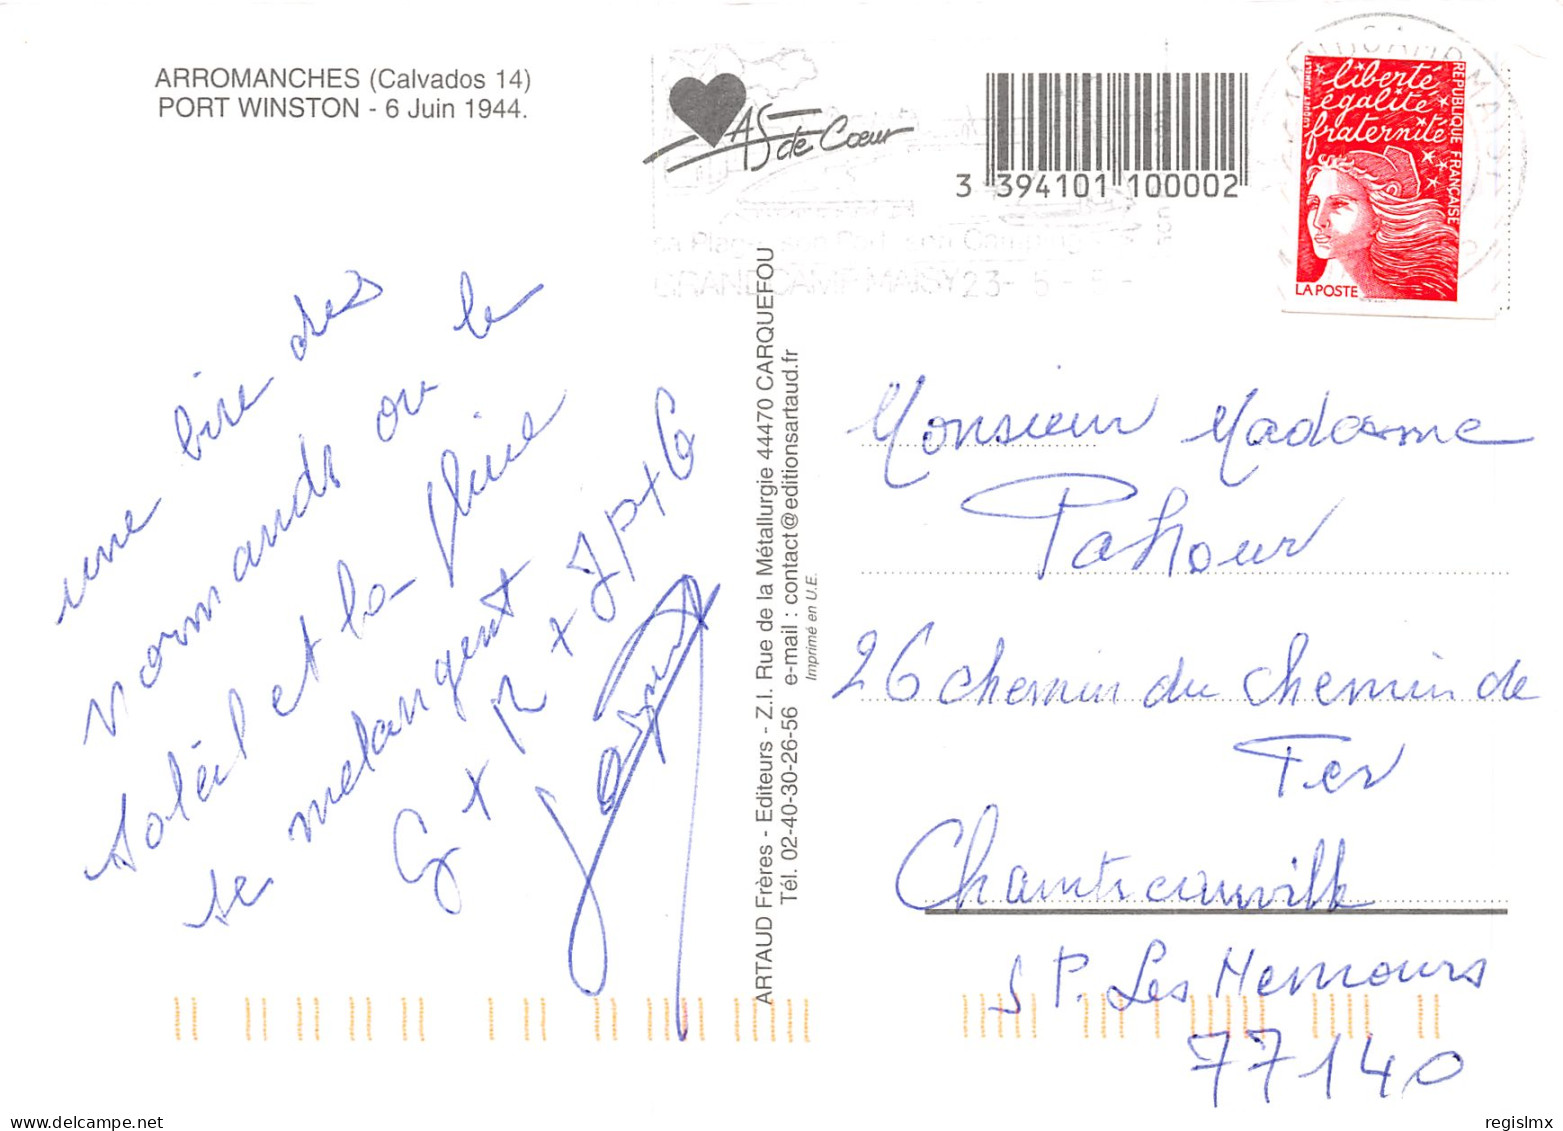 ARROMANCHES (Calvados 14)
PORT WINSTON - 6 Juin 1944.
AS de Cœur
3 394101 100002
liberté
égalité
fraternité
RÉPUBLIQUE FRANÇAISE
LA POSTE
GRANDCAMP-MAISY 23- 5 -
une bise des
normands ou le
soléil et la pluie
se mélangent
G + R + JP + G
ARTAUD Frères - Editeurs - Z.I. Rue de la Métallurgie 44470 CARQUEFOU
Tél. 02-40-30-26-56 e-mail : contact@editionsartaud.fr
Imprimé en U.E.
Monsieur Madame
Pahour
26 chemin du chemin de
Fer
S P. Les Nemours
77140
regislmx